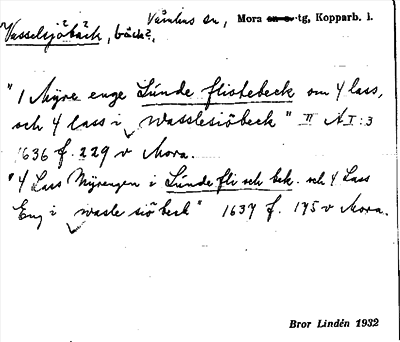 Våmhus sn, Mora tg, Kopparb. l.
Vasselsjöbäck, bäck?,
"1 Myre enge Lunde flistebeck om 4 lass,
och 4 lass i wasslesiöbeck" II A I:3
1636 f. 229 v Mora.
"4 Lass Myrengen i Lunde fli sch bek. och 4 Lass
Eng i wasle siö beck" 1637 f. 175 v Mora.
Bror Lindén 1932